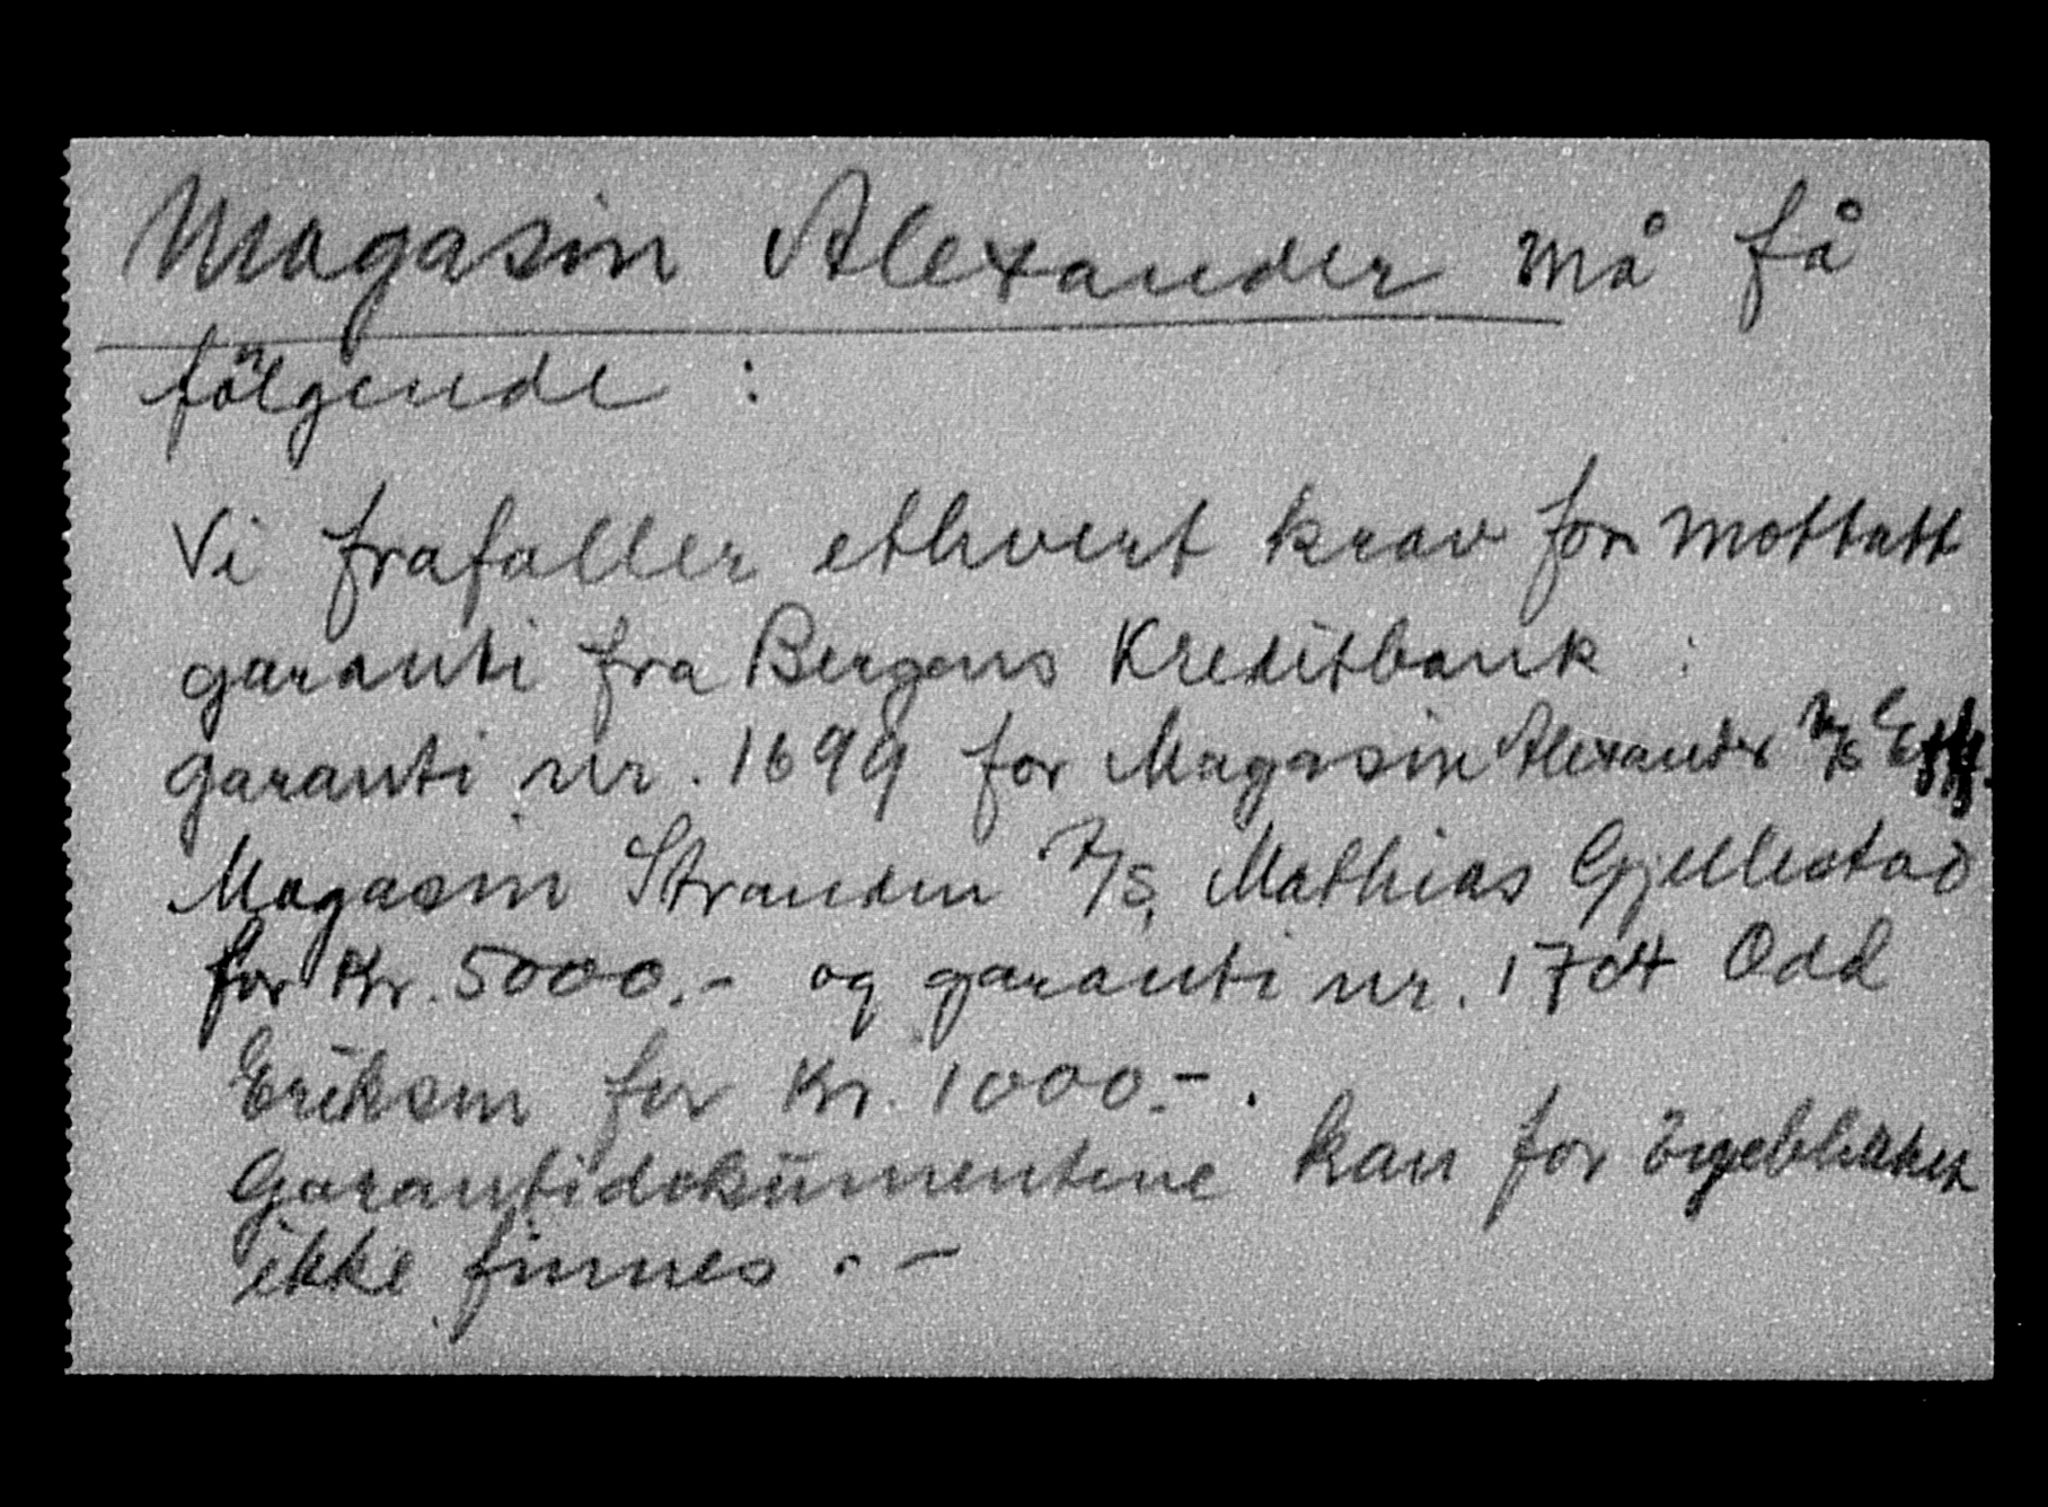 Magasin Alexander må få
følgende :
Vi frafaller ethvert krav for mottatt
garanti fra Bergens Kreditbank :
garanti nr. 1699 for Magasin Alexander A/S
Magasin Stranden A/S, Mathias Gjellestad
for Kr. 5000.- og garanti nr. 1704 Odd
Eriksen for Kr. 1000.- .
Garantidokumentene kan for øyeblikket
ikke finnes . -